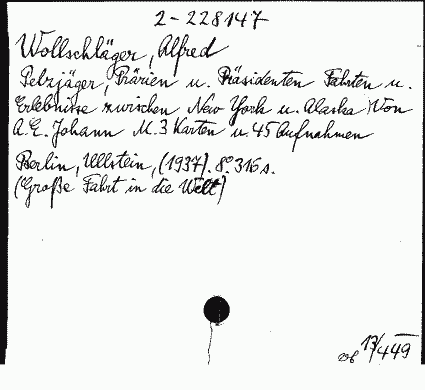 2-228147
Wollschläger, Alfred
Pelzjäger, Prärien u. Präsidenten Fahrten u.
Erlebnisse zwischen New York u. Alaska Von
A. E. Johann M. 3 Karten u. 45 Aufnahmen
Berlin, Ullstein, (1937). 8° 316 s.
(Große Fahrt in die Welt)
17/449